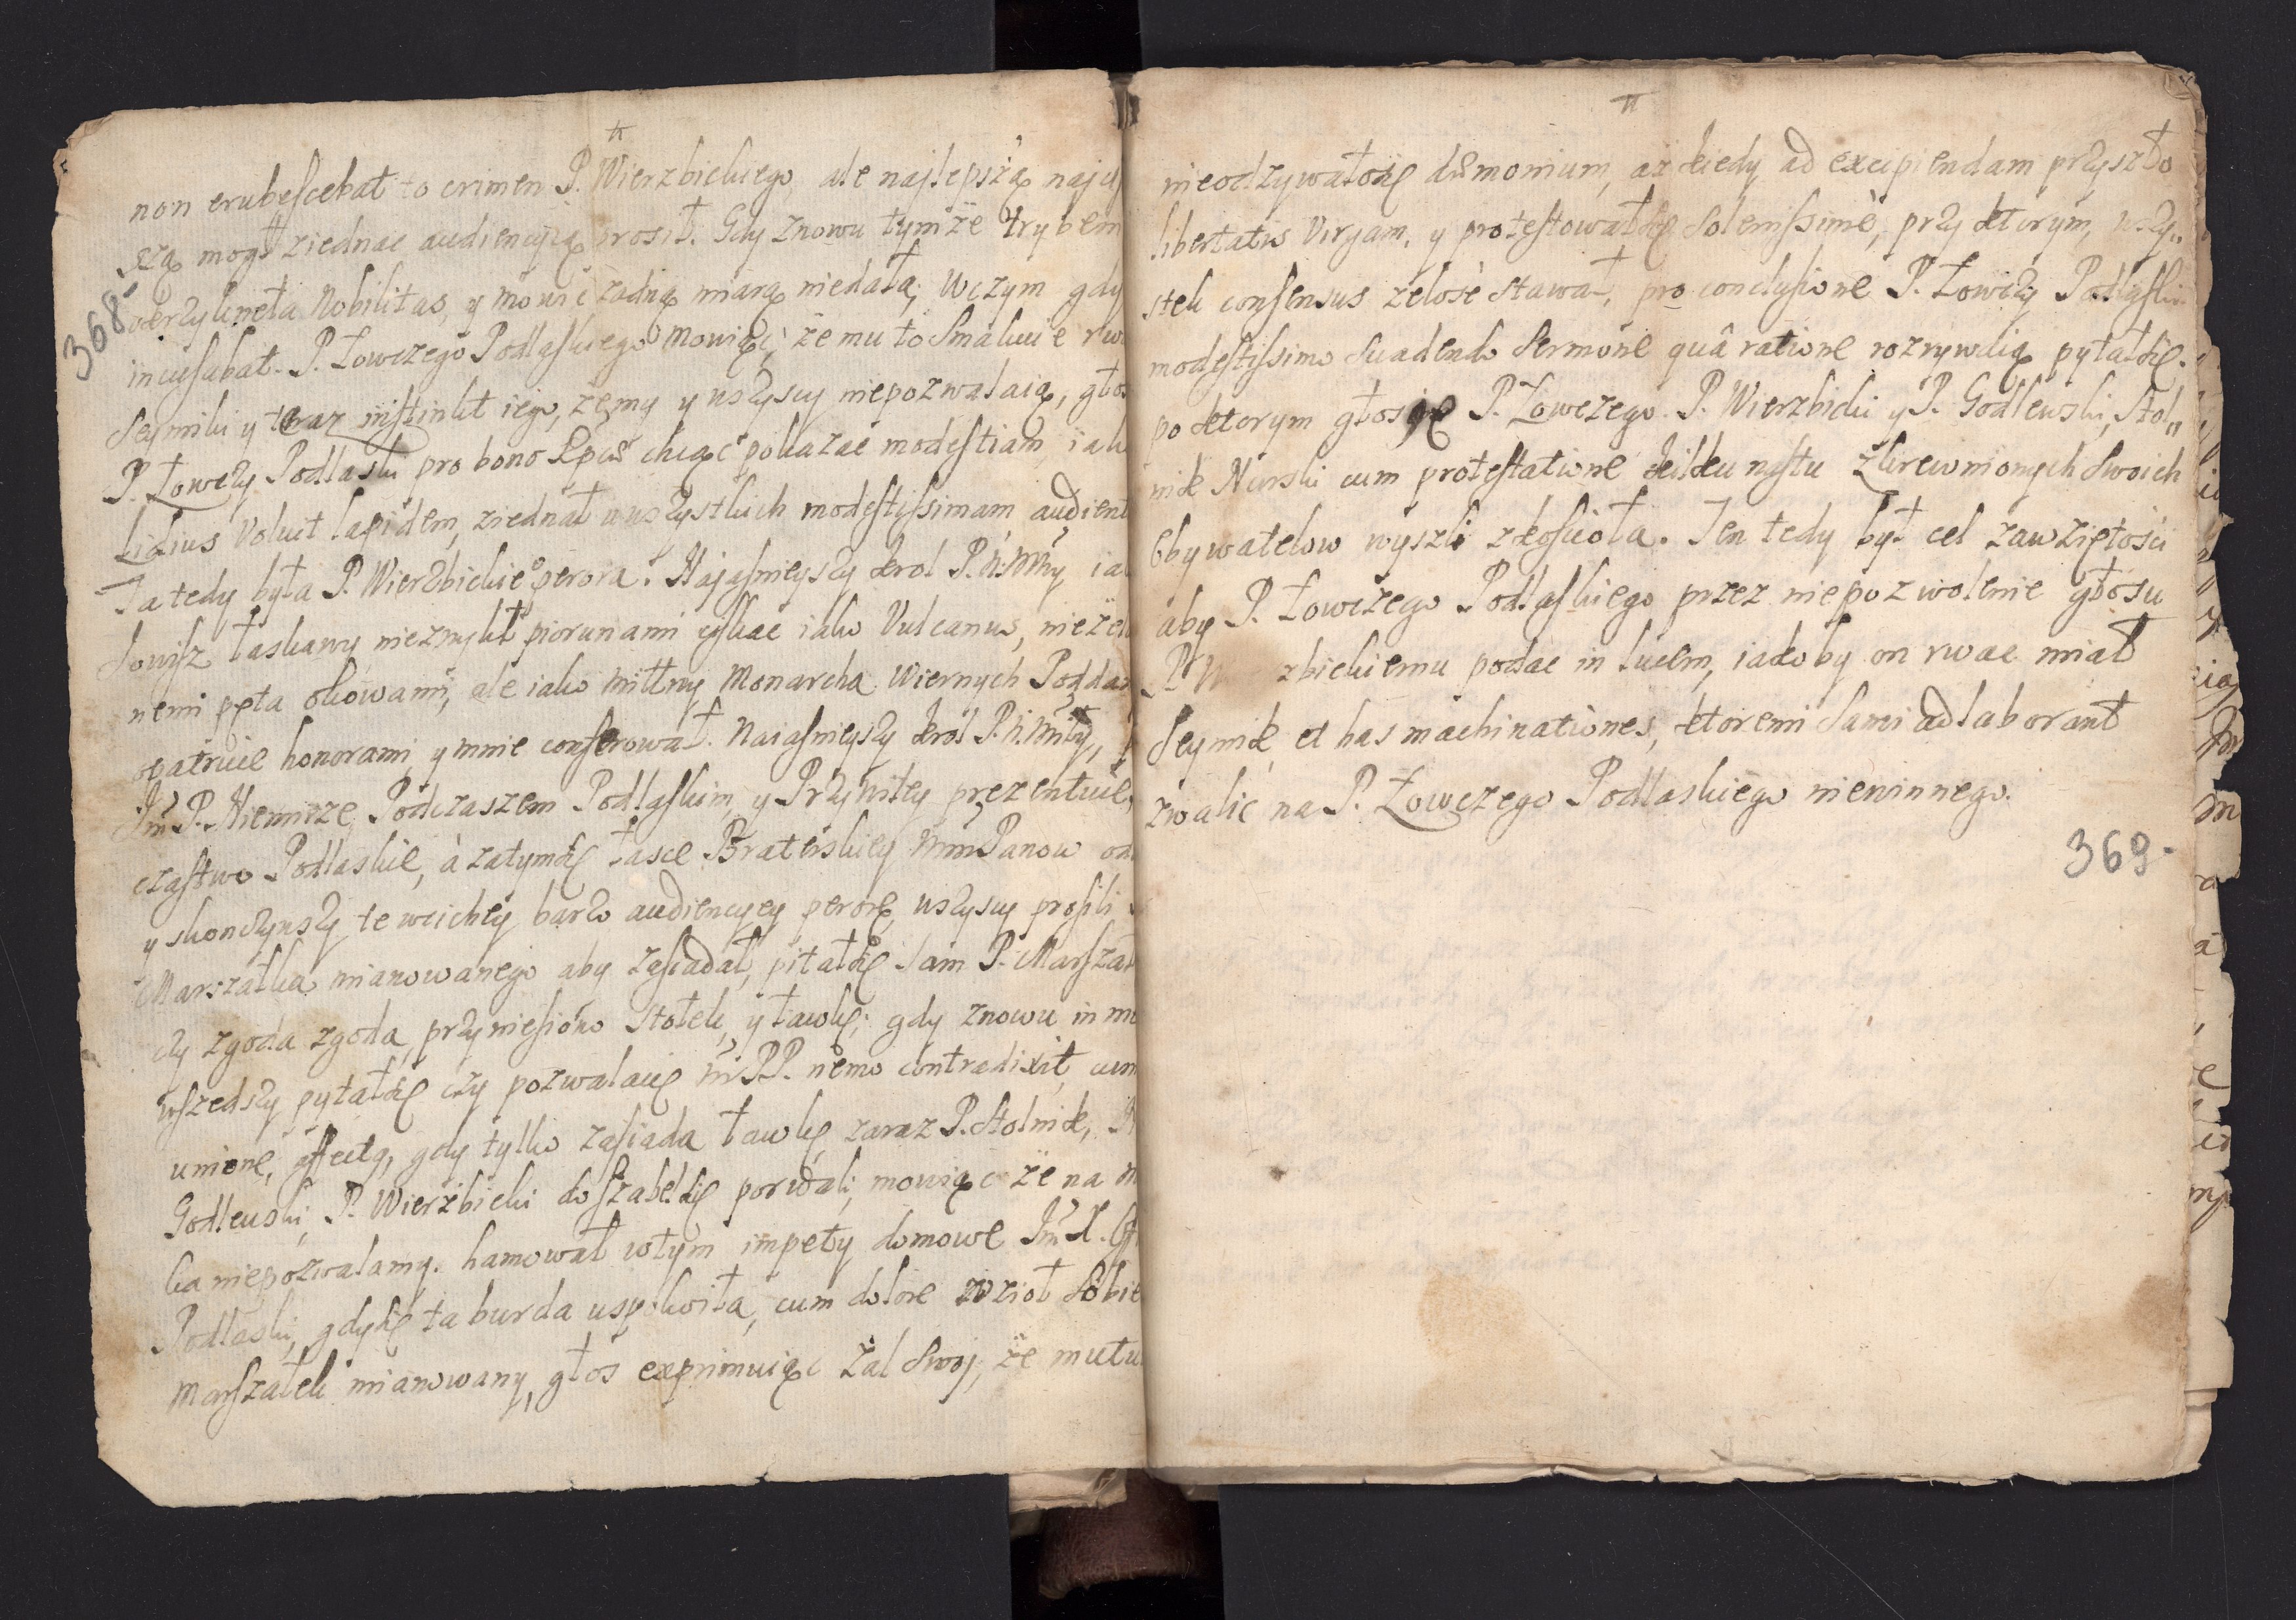 non erubescebat to crimen P. Wierzbickiego, ale najlepszą
szą mogł ziednac audiencyią prosił. Gdy znowu tymże trybem
okrzyknęła Nobilitas, y mowić żadną miarą niedała, wczym gdy
incusabat P. Łowczego Podlaskiego mowiąc, że mu to smakuie
368-
Seymiki y teraz instinkt iego, żemy y wszyscy niepozwalaią,
P. Łowczy Podlaski pro bono chcąc pokazać modestiam,
Lidius Voluit lapidem, ziednał u wszystkich modestissimam
Ta tedy była P. Wierzbickie° perora. Najasnieyszy krol P. N. Mły
Jowisz łaskawy niezwykł piorunami ciskac iako Vulcanus,
nemi pęta okowami, ale iako miłłny Monarcha Wiernych
opatruie honorami y mnie conferował. Naiasnieyszy krol P. N. Miły,
Jm P. Niemirze Podczaszem Podlaskim, y Przywiley prezentuie,
czastwo Podlaskie, à zatymsię łasce Braterskiey WmmPanow
y skonczywszy te wcichey barzo audiencyey perorę wszyscy prosili
Marszałka mianowanego aby zasiadał, pitałsię sam P.
czy zgoda zgoda przyniesiono stołek, y ławkę; gdy znowu
wszedszy pytałsię czy pozwalacię PP. nemo contradixit,
gdy tylko zasiada ławkę zaraz P. Stolnik,
Godlewski, P. Wierzbicki do szabelsię porwali, mowiąc że na
ka niepozwalamy. hamował wtym impety domowe Jm X.
Podlaski, gdysię ta burda uspokoiła, cum dolore wzioł sobie
Marszałek mianowany głos exprimuiąc żal swoj, że mu
nieodzywałosię dæmonium, aż kiedy ad excipiendam przyszło
libertatis Virgam, y protestowałsię solemissimè, przy ktorym, wszy„
stek consensus zelosè stawał, pro conclusione P. Łowczy Podlaski
modestissimo suadendo sermone quâ ratione rozrywaią pytałsię.
po ktorym głosię P. Łowczego P. Wierzbicki y P. Godlewski, Stol„
nik Nurski cum protestatione kilkunastu zkrewnionych swoich
Obywatelow wyszli zkoscioła. Ten tedy był cel zawziętości
aby P. Łowczego Podlaskiego przez niepozwolenie głosu
P. zbickiemu podac in lucem, iakoby on rwac miał
Seymik, et has machinationes, ktoremi sami adlaborant
zwalić na P. Łowczego Podlaskiego niewinnego.
369-